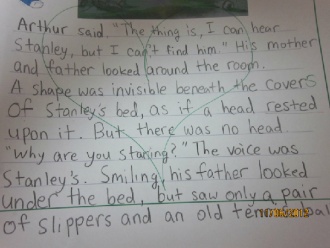 Arthur said. "The thing is, I can hear
Stanley, but I can't find him." His mother
and father looked around the room.
A shape was invisible beneath the covers
Of Stanley's bed, as if a head rested
upon it. But there was no head
"Why are you staring?" The voice was
Stanley's. Smiling, his father looked
under the bed, but saw only a pair
of slippers and an old tennis